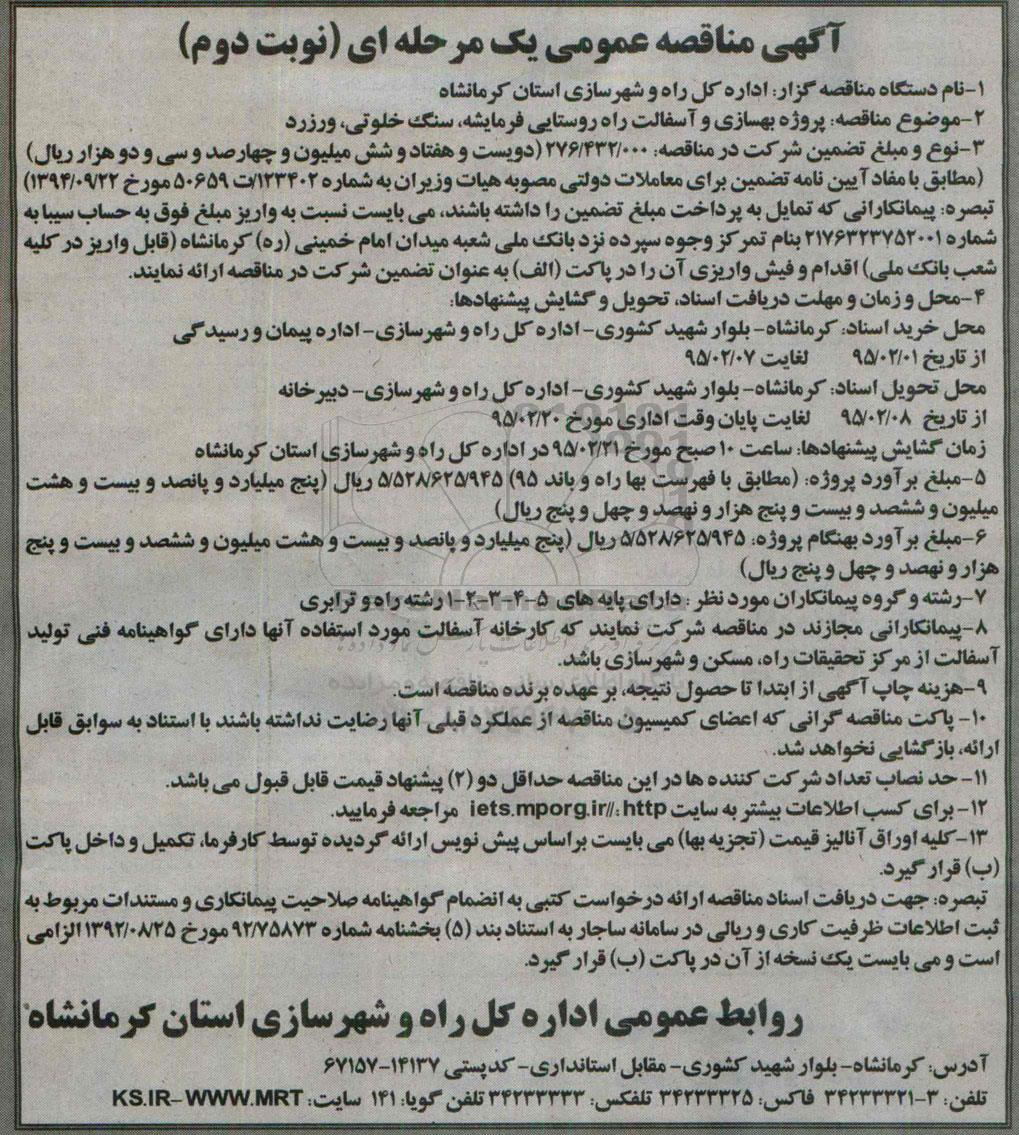 آگهی مناقصه عمومی یک مرحله ای (نوبت دوم)
۱-نام دستگاه مناقصه گزار: اداره کل راه و شهرسازی استان کرمانشاه
۲-موضوع مناقصه: پروژه بهسازی و آسفالت راه روستایی فرمایشه، سنگ خلوتی، ورزرد
۳-نوع و مبلغ تضمین شرکت در مناقصه: ۲۷۶/۴۳۲/۰۰۰ (دویست و هفتاد و شش میلیون و چهارصد و سی و دو هزار ریال)
(مطابق با مفاد آیین نامه تضمین برای معاملات دولتی مصوبه هیات وزیران به شماره ۱۲۳۴۰۲/ت ۵۰۶۵۹ مورخ ۱۳۹۴/۰۹/۲۲)
تبصره: پیمانکارانی که تمایل به پرداخت مبلغ تضمین را داشته باشند، می بایست نسبت به واریز مبلغ فوق به حساب سیبا به
شماره ۲۱۷۶۳۲۳۷۵۲۰۰۱ بنام تمرکز وجوه سپرده نزد بانک ملی شعبه میدان امام خمینی (ره) کرمانشاه (قابل واریز در کلیه
شعب بانک ملی) اقدام و فیش واریزی آن را در پاکت (الف) به عنوان تضمین شرکت در مناقصه ارائه نمایند.
۴-محل و زمان و مهلت دریافت اسناد، تحویل و گشایش پیشنهادها:
محل خرید اسناد: کرمانشاه- بلوار شهید کشوری- اداره کل راه و شهرسازی- اداره پیمان و رسیدگی
از تاریخ ۹۵/۰۲/۰۱ لغایت ۹۵/۰۲/۰۷
محل تحویل اسناد: کرمانشاه- بلوار شهید کشوری- اداره کل راه و شهرسازی- دبیرخانه
از تاریخ ۹۵/۰۲/۰۸ لغایت پایان وقت اداری مورخ ۹۵/۰۲/۲۰
زمان گشایش پیشنهادها: ساعت ۱۰ صبح مورخ ۹۵/۰۲/۲۱ در اداره کل راه و شهرسازی استان کرمانشاه
۵-مبلغ برآورد پروژه: (مطابق با فهرست بها راه و باند ۹۵) ۵/۵۲۸/۶۲۵/۹۴۵ ریال (پنج میلیارد و پانصد و بیست و هشت
میلیون و ششصد و بیست و پنج هزار و نهصد و چهل و پنج ریال)
۶-مبلغ برآورد بهنگام پروژه: ۵/۵۲۸/۶۲۵/۹۴۵ ریال (پنج میلیارد و پانصد و بیست و هشت میلیون و ششصد و بیست و پنج
هزار و نهصد و چهل و پنج ریال)
۷-رشته و گروه پیمانکاران مورد نظر : دارای پایه های ۵-۴-۳-۲-۱ رشته راه و ترابری
۸-پیمانکارانی مجازند در مناقصه شرکت نمایند که کارخانه آسفالت مورد استفاده آنها دارای گواهینامه فنی تولید
آسفالت از مرکز تحقیقات راه، مسکن و شهرسازی باشد.
۹-هزینه چاپ آگهی از ابتدا تا حصول نتیجه، بر عهده برنده مناقصه است.
۱۰- پاکت مناقصه گرانی که اعضای کمیسیون مناقصه از عملکرد قبلی آنها رضایت نداشته باشند با استناد به سوابق قابل
ارائه، بازگشایی نخواهد شد.
۱۱- حد نصاب تعداد شرکت کننده ها در این مناقصه حداقل دو (۲) پیشنهاد قیمت قابل قبول می باشد.
۱۲- برای کسب اطلاعات بیشتر به سایت iets.mporg.ir//:http مراجعه فرمایید.
۱۳-کلیه اوراق آنالیز قیمت (تجزیه بها) می بایست براساس پیش نویس ارائه گردیده توسط کارفرما، تکمیل و داخل پاکت
(ب) قرار گیرد.
تبصره: جهت دریافت اسناد مناقصه ارائه درخواست کتبی به انضمام گواهینامه صلاحیت پیمانکاری و مستندات مربوط به
ثبت اطلاعات ظرفیت کاری و ریالی در سامانه ساجار به استناد بند (۵) بخشنامه شماره ۹۲/۷۵۸۷۳ مورخ ۱۳۹۲/۰۸/۲۵ الزامی
است و می بایست یک نسخه از آن در پاکت (ب) قرار گیرد.
روابط عمومی اداره کل راه و شهرسازی استان کرمانشاه
آدرس: کرمانشاه- بلوار شهید کشوری- مقابل استانداری- کدپستی ۱۴۱۳۷-۶۷۱۵۷
تلفن: ۳-۳۴۲۳۳۳۲۱ فاکس: ۳۴۲۳۳۳۲۵ تلفکس: ۳۴۲۳۳۳۳۳ تلفن گویا: ۱۴۱ سایت: KS.IR-WWW.MRT